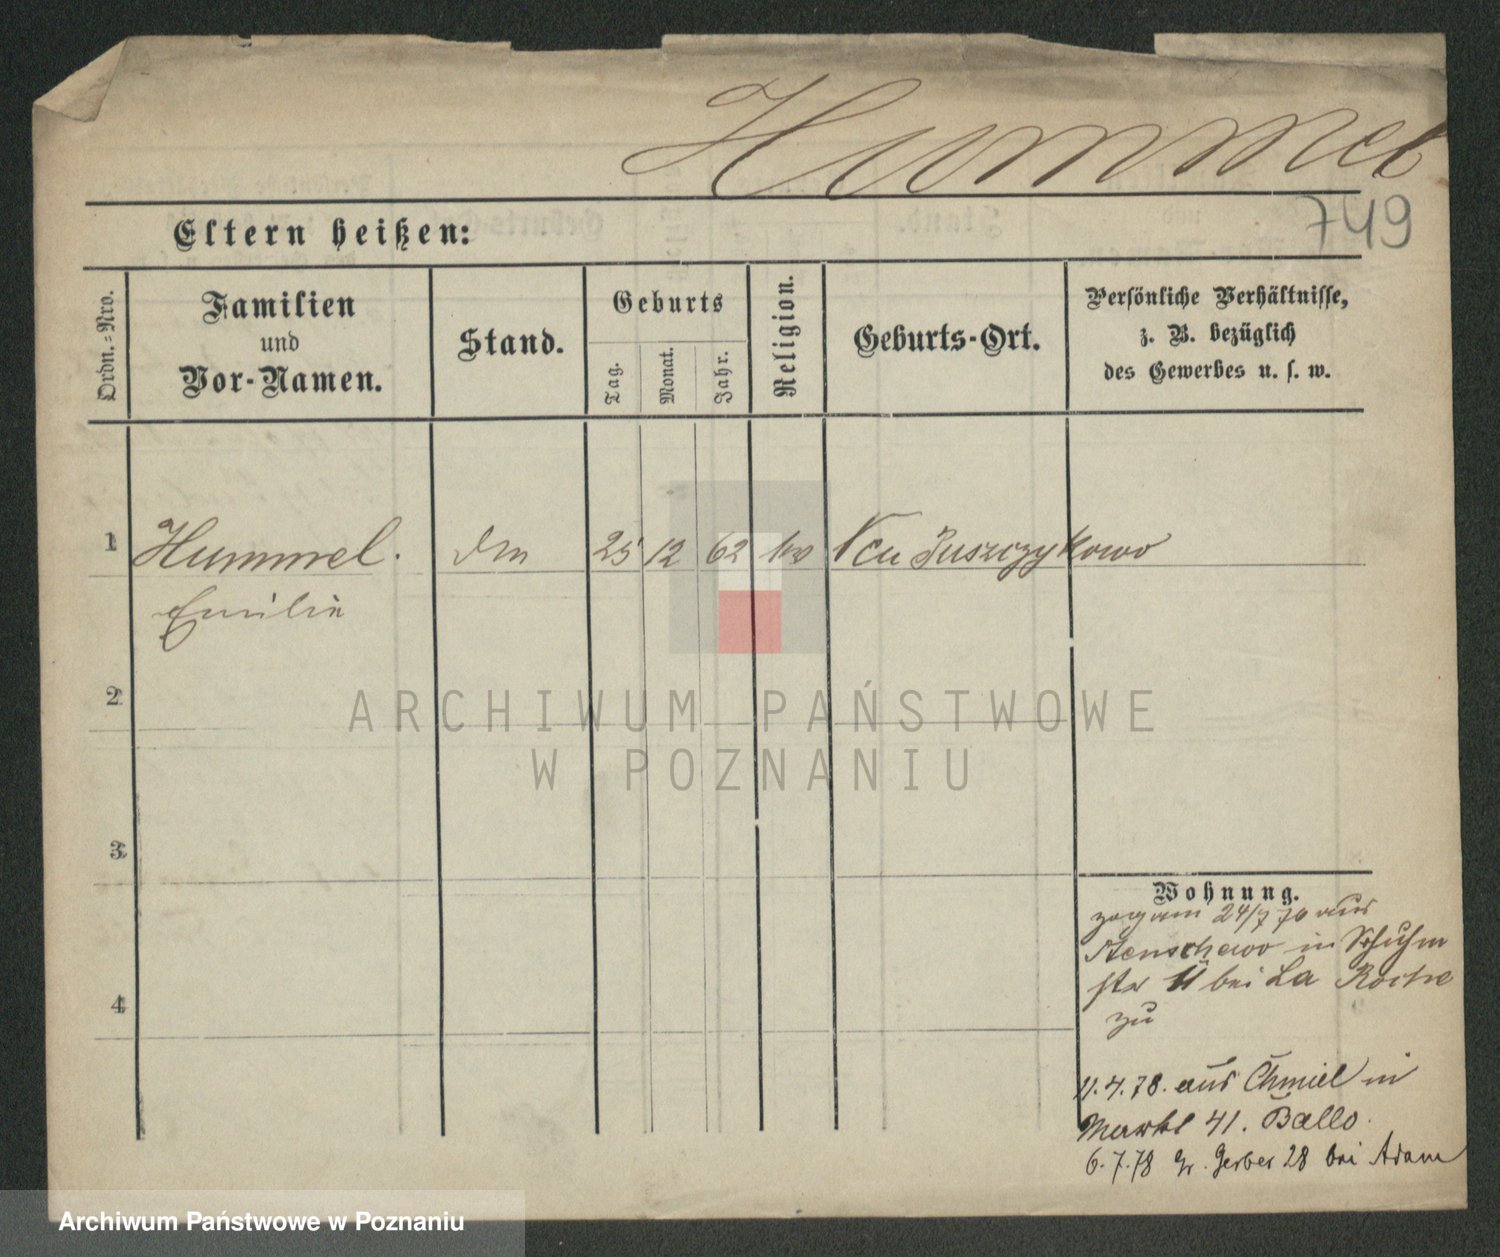 Hummel
749
Eltern heißen:
Ordn.-Nro.
Familien
und
Vor-Namen.
Stand.
Geburts
Tag.
Monat.
Jahr.
Religion.
Geburts-Ort.
Persönliche Verhältnisse,
z. B. bezüglich
des Gewerbes u. s. w.
1
Hummel.
25 12 62
Neu Puszczykowo
Emilie
2
3
4
Wohnung.
zog am 24/7 76 aus
Stenschewo in Schuhm
str 11 bei La Roche
zu
11.4.78. aus Chmiel in
Markt 41. Ballo.
6.7.78 Gr. Gerber 28 bei Adam
ARCHIWUM PAŃSTWOWE
W POZNANIU
Archiwum Państwowe w Poznaniu